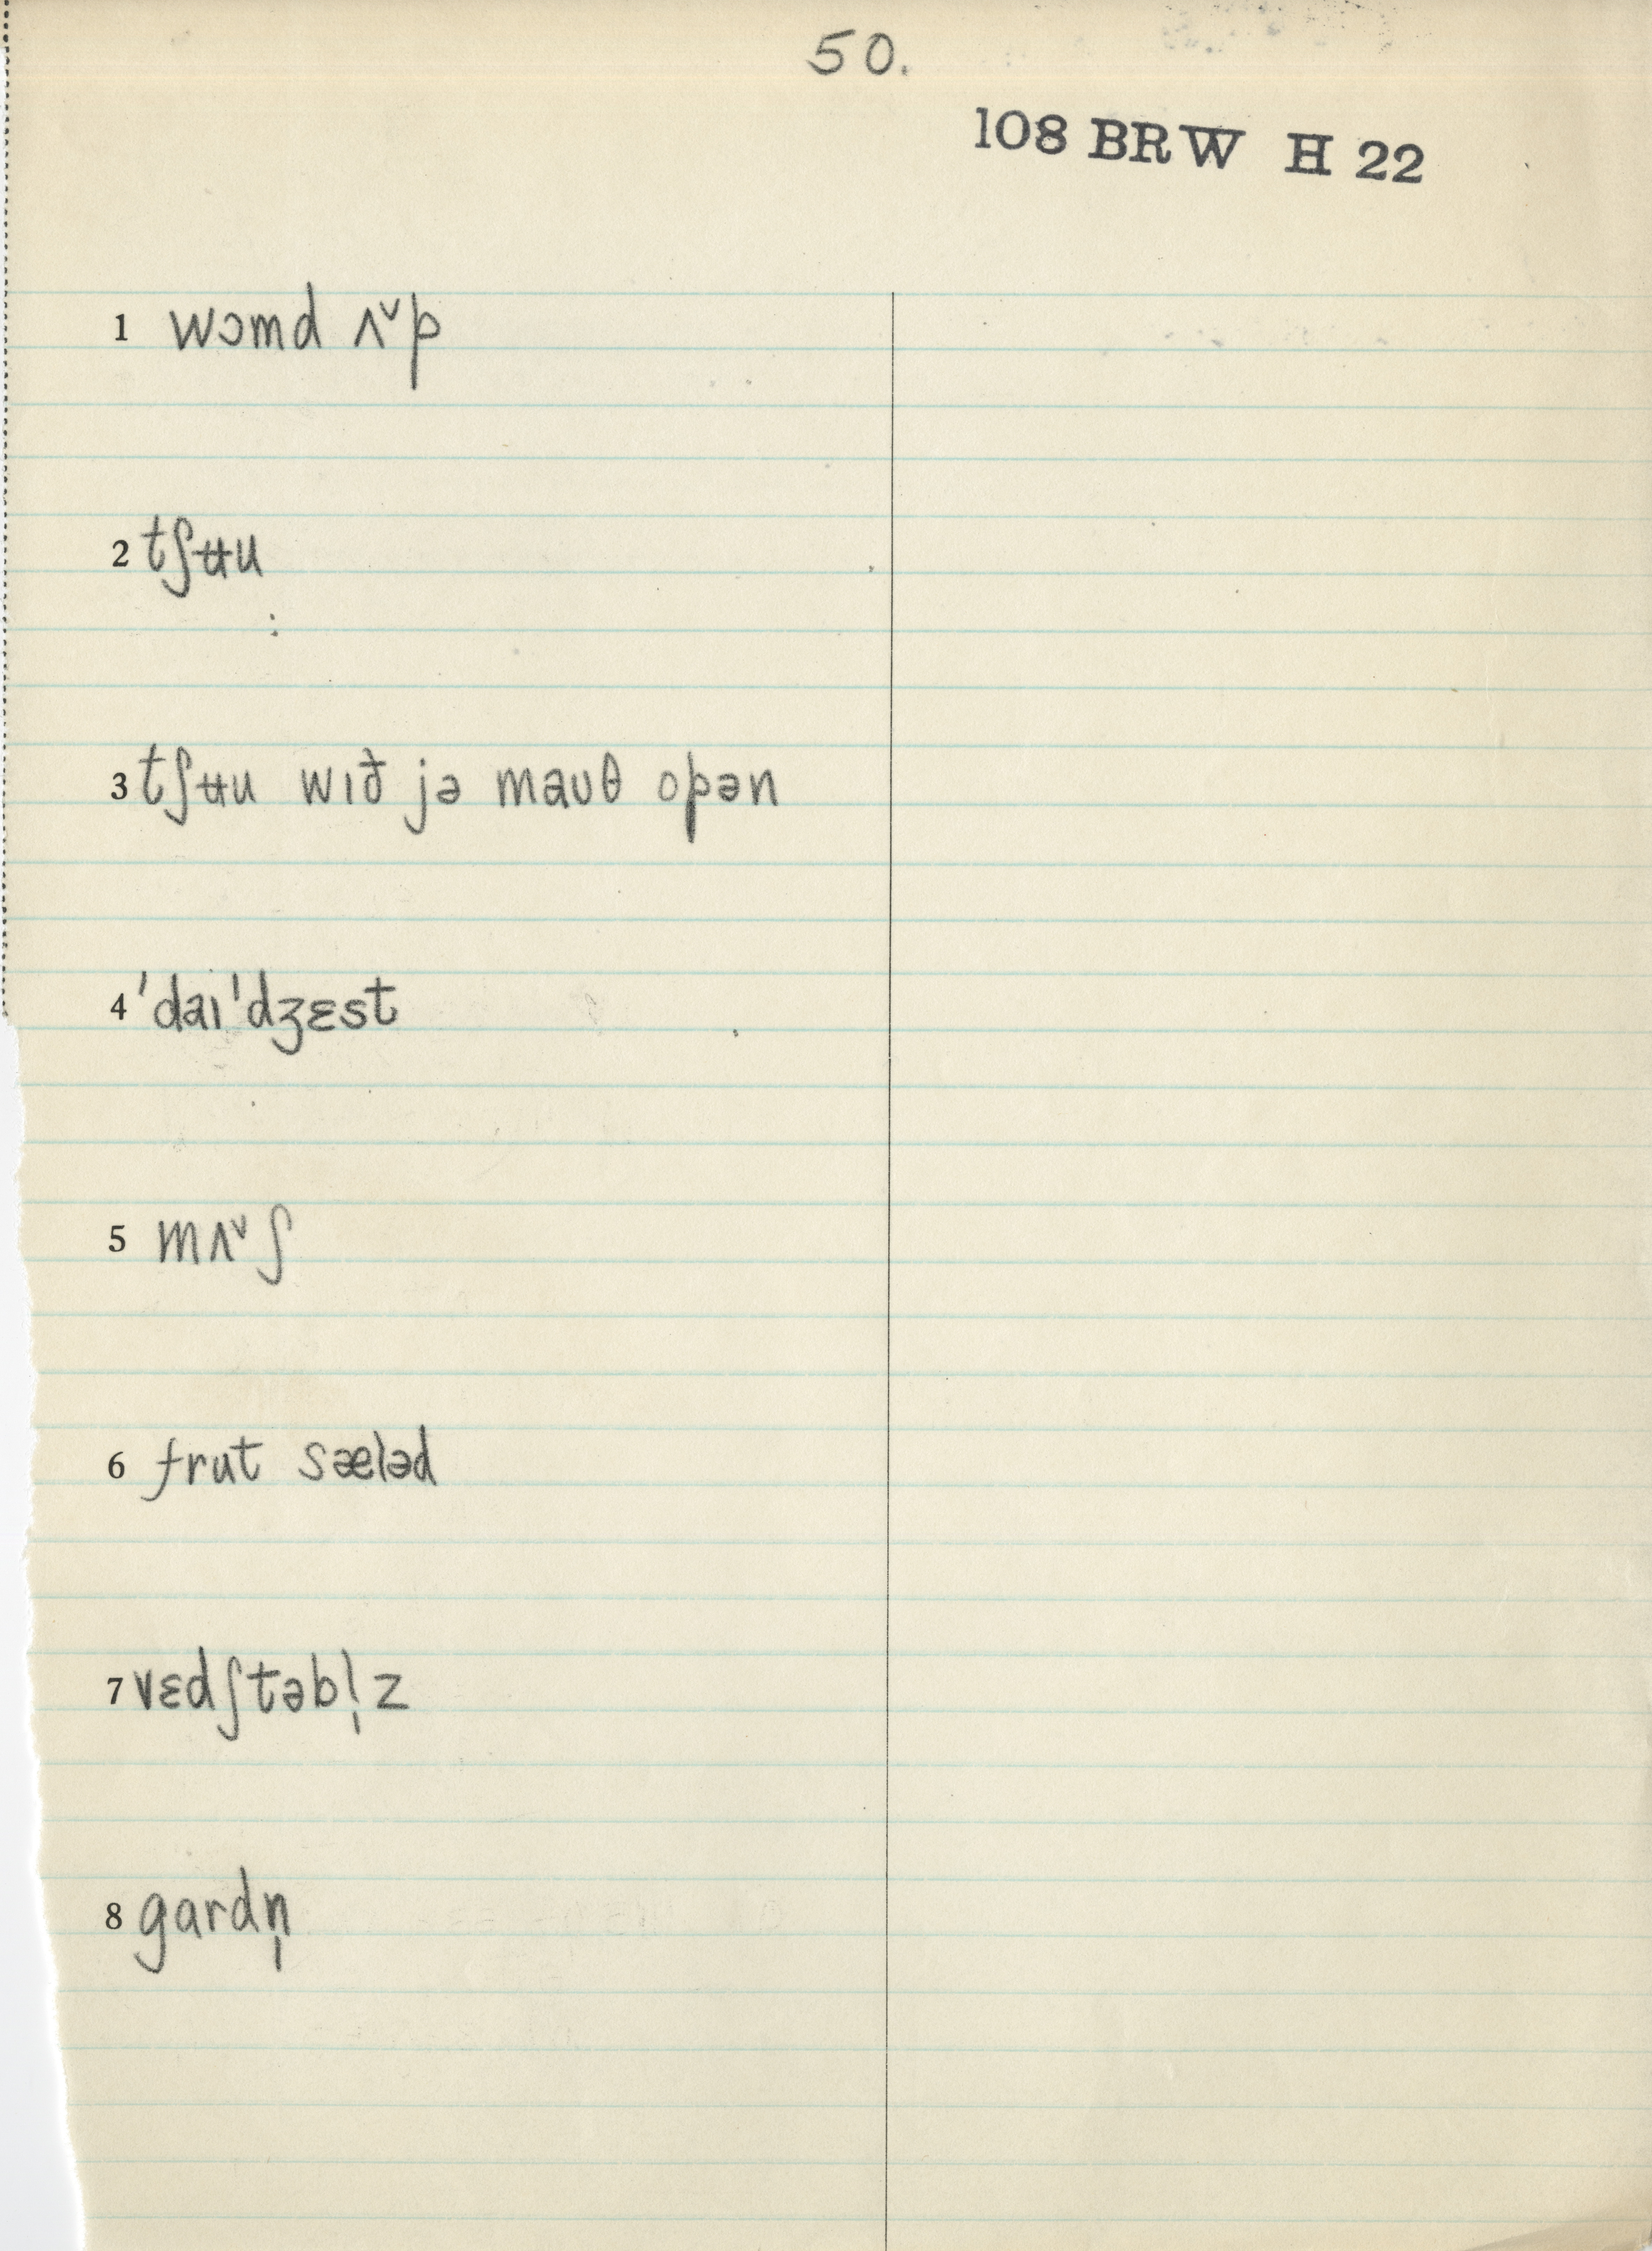 50.
108 BRW H 22
1 wɔmd ʌ˅p
2 tʃʉu
3 tʃʉu wɪð jə mauθ opən
4 'daɪ'dʒɛst
5 mʌ˅ʃ
6 frut sæləd
7 vɛdʃtəbl̩z
8 gardn̩